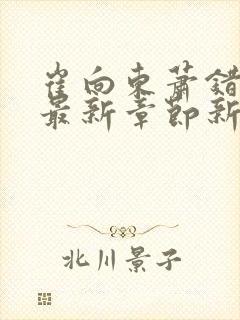 崔向东萧错
最新章节新
北川景子